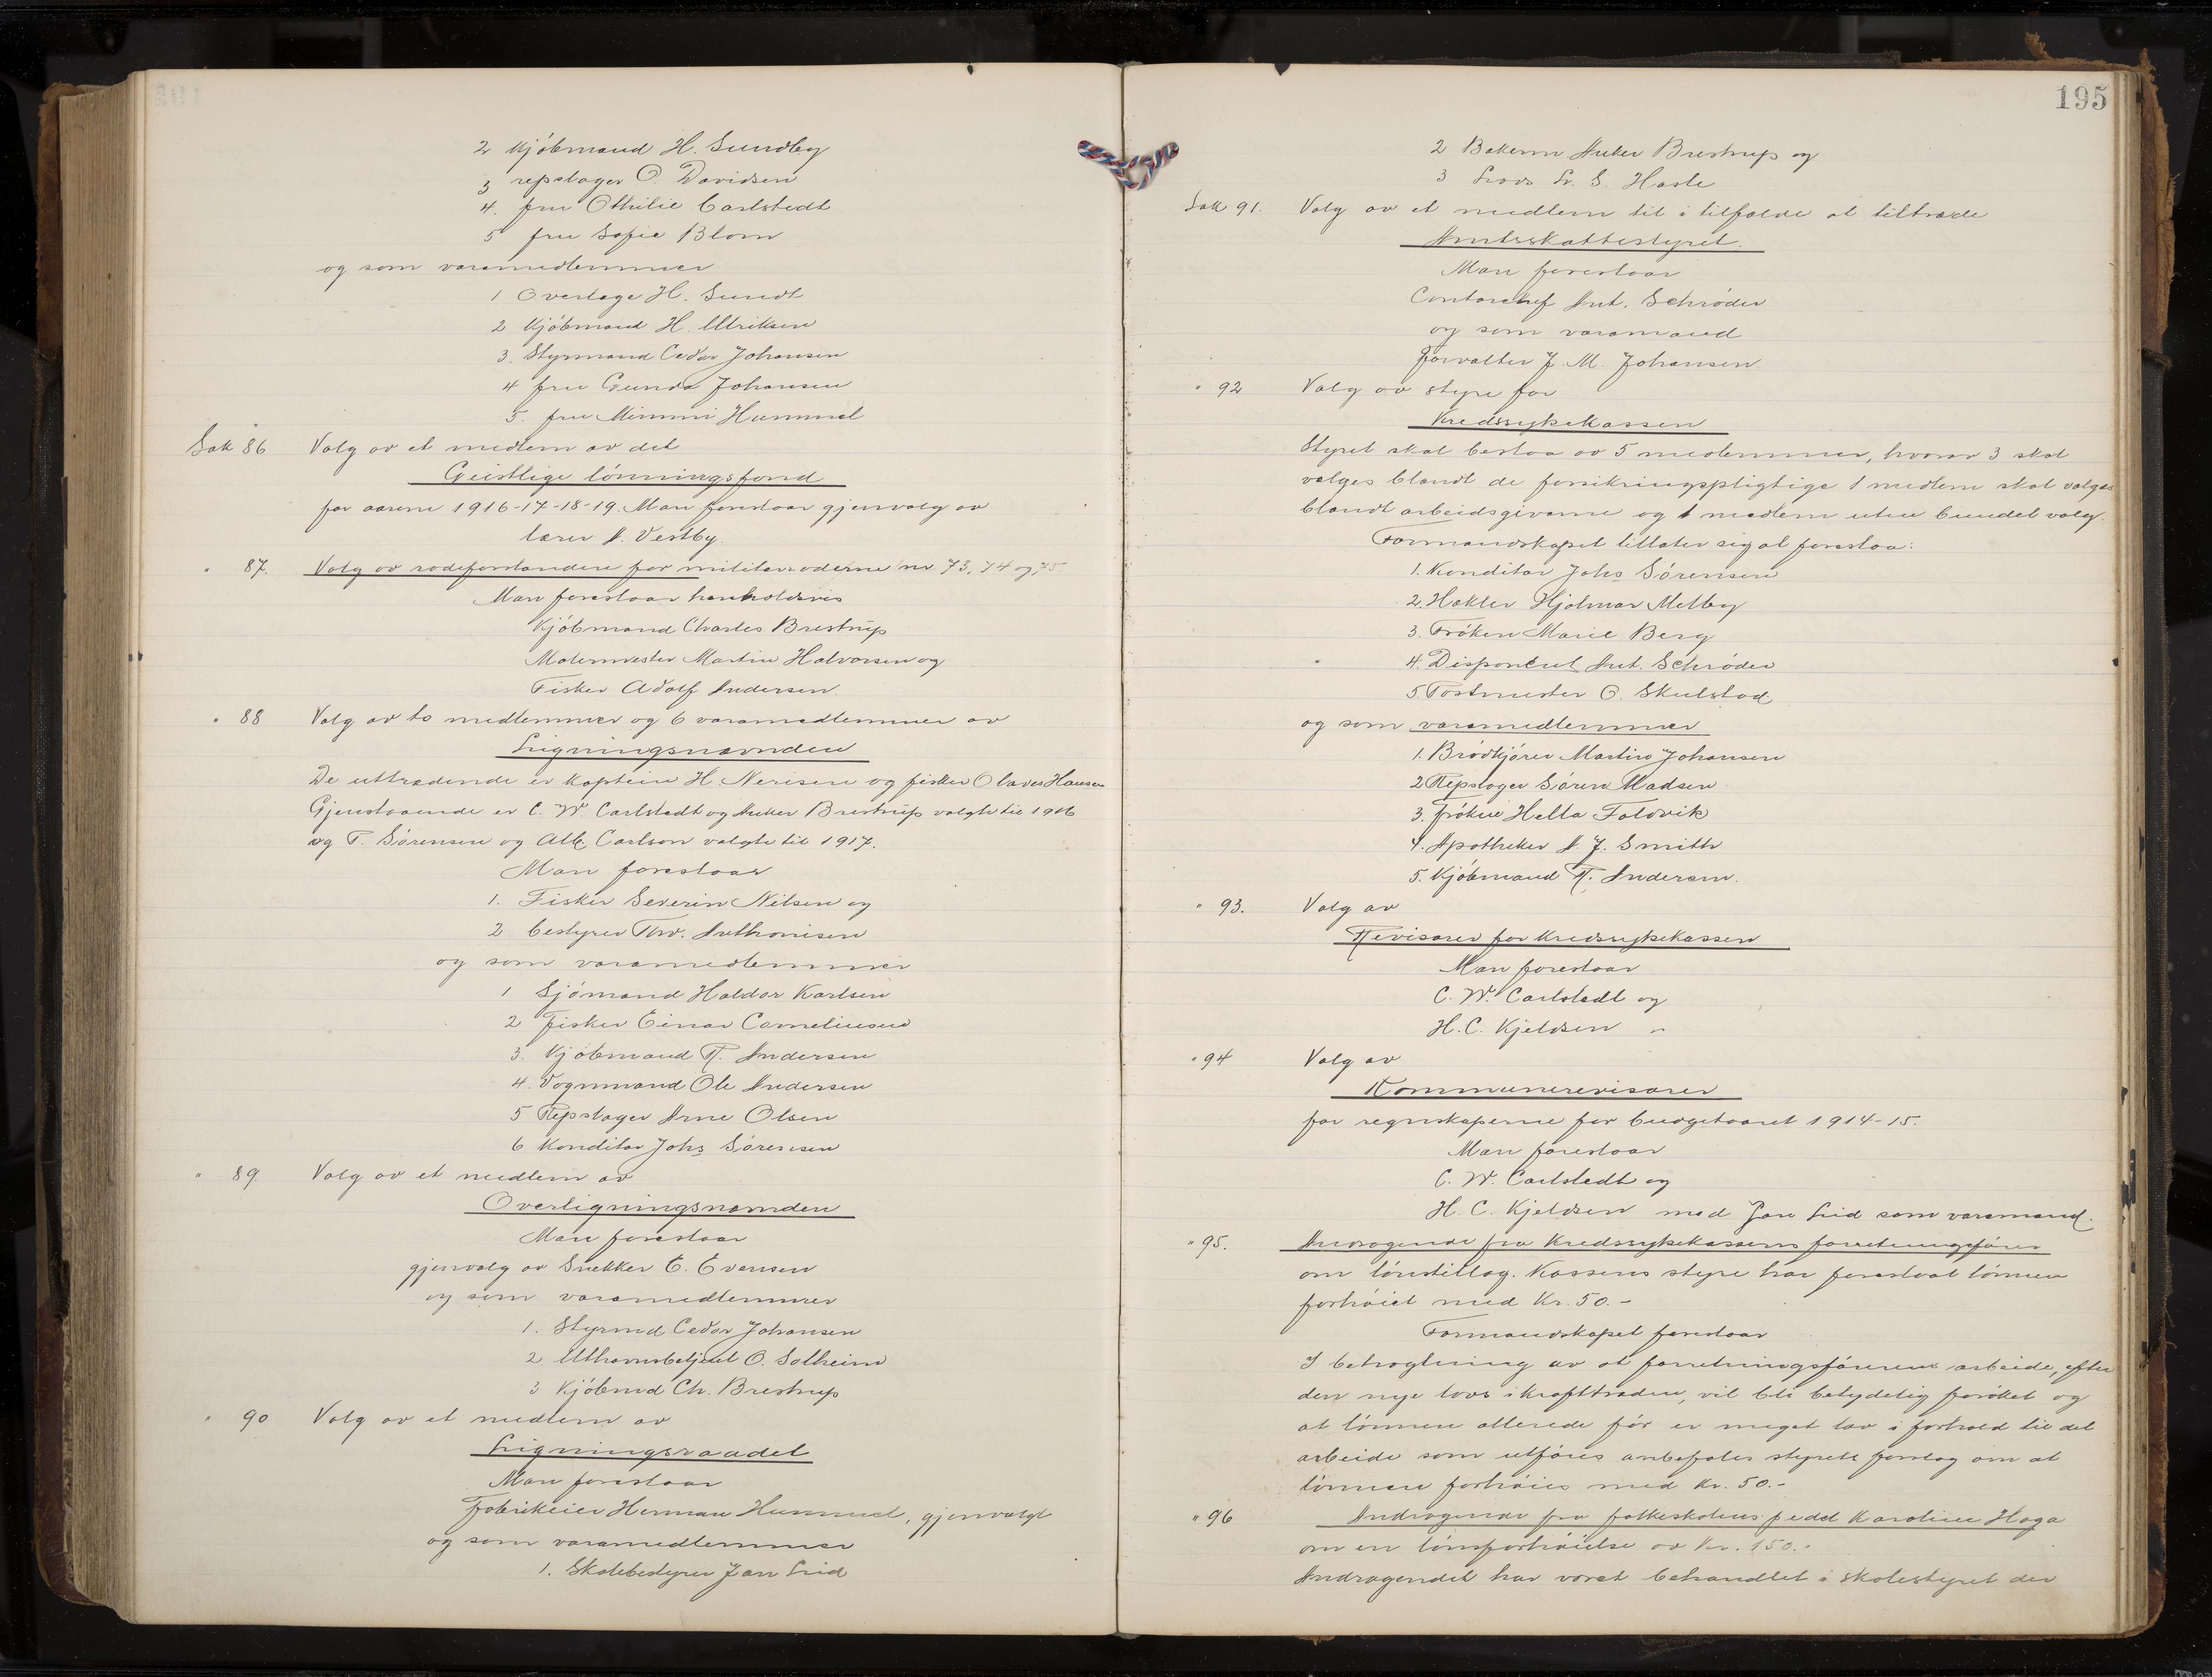 2 Kjöbmand H. Sundby
3 repslager O. Davidsen
4. fru Othilie Carlstedt
5 fru Sofie Blom
og som varamedlemmer
1 Overlæge H. Sundt
2 Kjöbmand H. Ulriksen
3. Styrmand Cedor Johansen
4 fru Gunda Johansen
5. fru Mimmi Hummel
Sak 86 Valg av et medlem av det
Geistlige lönningsfond
for aarene 1916-17-18-19. Man foreslaar gjenvalg av
lærer A. Vestby.
" 87. Valg av rodeforstandere for militærroderne nr 73, 74 og 75
Man foreslaar henholdsvis
Kjöbmand Charles Brestrup
Malermester Martin Halvorsen og
Fisker Adolf Andersen.
" 88 Valg av to medlemmer og 6 varamedlemmer av
Ligningsnævnden
De uttrædende er kaptein H. Nerisen og fisker Olaves Hansen
Gjenstaaende er C. W. Carlstedt og Anker Brestrup valgte til 1916
og T. Sörensen og Alb. Carlson valgte til 1917.
Man foreslaar
1. Fisker Severin Nilsen og
2. bestyrer Thv. Anthonisen
og som varamedlemmer
1 Sjömand Haldor Karlsen
2 fisker Einar Corneliusen
3. Kjöbmand R. Andersen
4. Vognmand Ole Andersen
5 Repslager Arne Olsen
6 Konditor Johs Sörensen
" 89. Valg av et medlem av
Overligningsnævnden
Man foreslaar
gjenvalg av Snekker E. Evensen
og som varamedlemmer
1. Styrmd Cedor Johansen
2. Uthavnsbetjent O. Solheim
3 Kjöbmd Ch. Brestrup
" 90 Valg av et medlem av
Ligningsraadet
Man foreslaar
fabrikeier Herman Hummel, gjenvalgt
og som varamedlemmer
1. Skolebestyrer Jan Lid
195
2 Bakerm Anker Brestrup og
3 Lods L. S. Hasle
Sak 91. Valg av et medlem til i tilfælde at tiltræde
Amtsskattestyret.
Man foreslaar
Contorchef Ant. Schröder
og som varamand
forvalter J. M. Johansen
" 92 Valg av styre for
Kredssykekassen
Styret skal bestaa av 5 medlemmer, hvorav 3 skal
vælges blandt de forsikringspligtige 1 medlem skal vælges
blandt arbeidsgiverne og 1 medlem uten bundet valg.
Formandskapet tillater sig at foreslaa:
1. Konditor Johs Sörensen
2. Hekler Hjalmar Melby
3. Fröken Marie Berg
4. Disponent Ant. Schröder
5 Postmester O. Skulstad
og som varamedlemmer
1. Brödkjörer Martin Johansen
2 Repslager Sören Madsen
3. fröken Hella Foldvik
4. Apotheker A. J. Smith
5. Kjöbmand R. Andersen.
" 93. Valg av
Revisorer for Kredssykekassen
Man foreslaar
C. W. Carlstedt og
H. C. Kjeldsen "
" 94 Valg av
Kommunerevisorer
for regnskaperne for budgetaaret 1914-15.
Man foreslaar
C. W. Carlstedt og
H. C. Kjeldsen med Jan Lid som varamand.
" 95. Andragende fra Kredssykekassens forretningsförer
om lönstillæg. Kassens styre har foreslaat lönnen
forhöiet med Kr. 50.-
Formandskapet foreslaar
I betragtning av at forretningsförerens arbeide, efter
den nye lovs ikrafttræden, vil bli betydelig foröket og
at lönnen allerede för er meget lav i forhold til det
arbeide som utföres anbefales styrets forslag om at
lönnen forhöies med Kr. 50.-
" 96 Andragende fra folkeskolens pedel Karoline Haga
om en lönsforhöielse av Kr. 150.-
Andragendet har været behandlet i skolestyret der